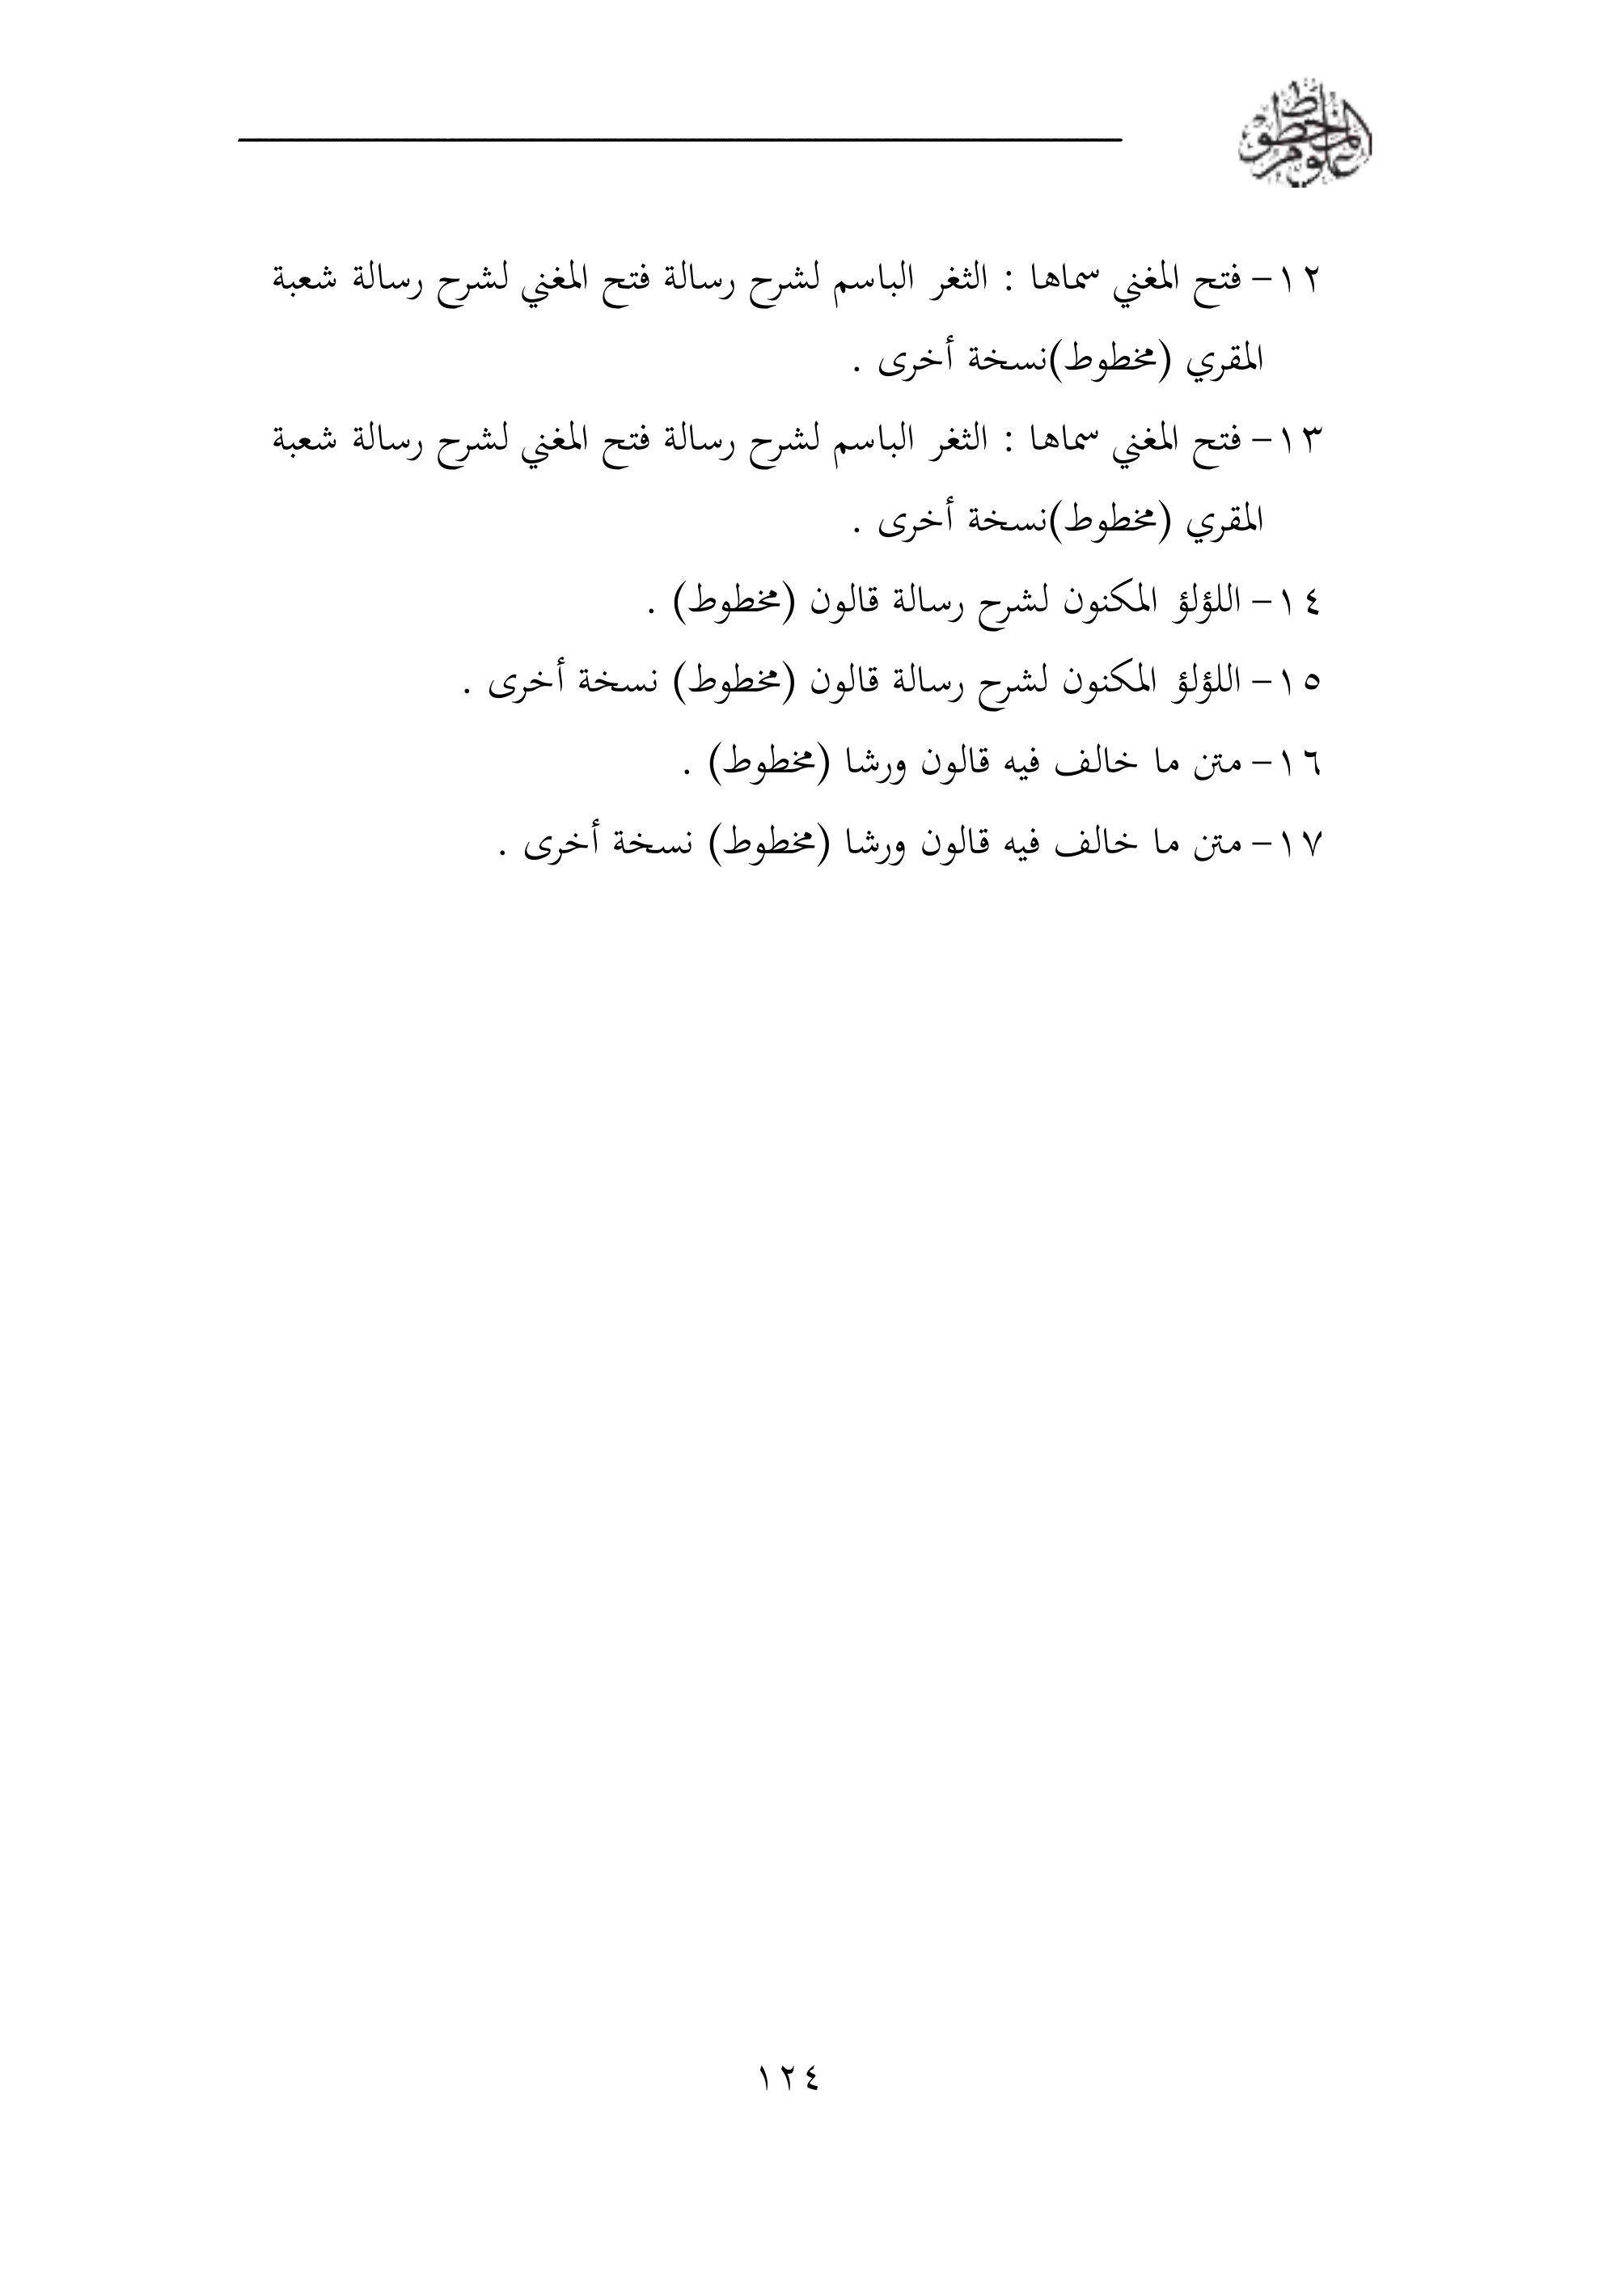 علوم المخطوط
١٢- فتح المغني سماها : الثغر الباسم لشرح رسالة فتح المغني لشرح رسالة شعبة
المقري (مخطوط)نسخة أخرى .
١٣- فتح المغني سماها : الثغر الباسم لشرح رسالة فتح المغني لشرح رسالة شعبة
المقري (مخطوط)نسخة أخرى .
١٤- اللؤلؤ المكنون لشرح رسالة قالون (مخطوط) .
١٥- اللؤلؤ المكنون لشرح رسالة قالون (مخطوط) نسخة أخرى .
١٦- متن ما خالف فيه قالون ورشا (مخطوط) .
١٧- متن ما خالف فيه قالون ورشا (مخطوط) نسخة أخرى .
١٢٤